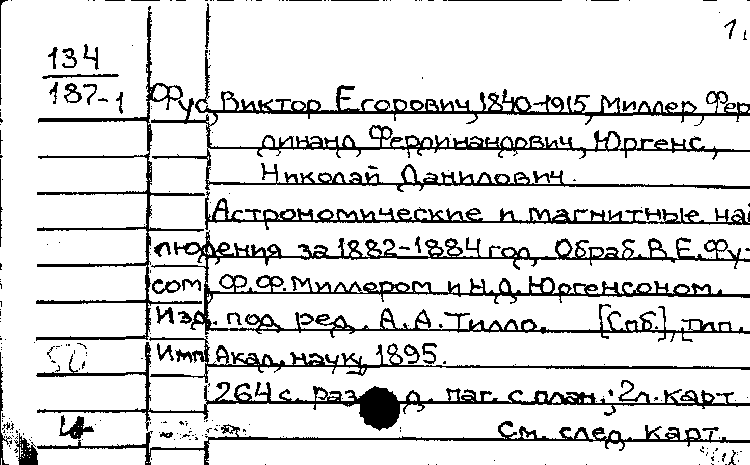 1
134
187-1
Фус, Виктор Егорович, 1840-1915, Миллер, Фер
динанд Фердинандович, Юргенс,
Николай Данилович.
Астрономические и магнитные наб
людения за 1882-1884 год, Обраб. В.Е. Фу-
сом, Ф.Ф. Миллером и Н.Д. Юргенсоном.
Изд. под ред. А.А. Тилло. [Спб.], тип.
Имп. Акад. наук, 1895.
50
264 с. раз д. паг. с план.; 2 л. карт
См. след. карт.